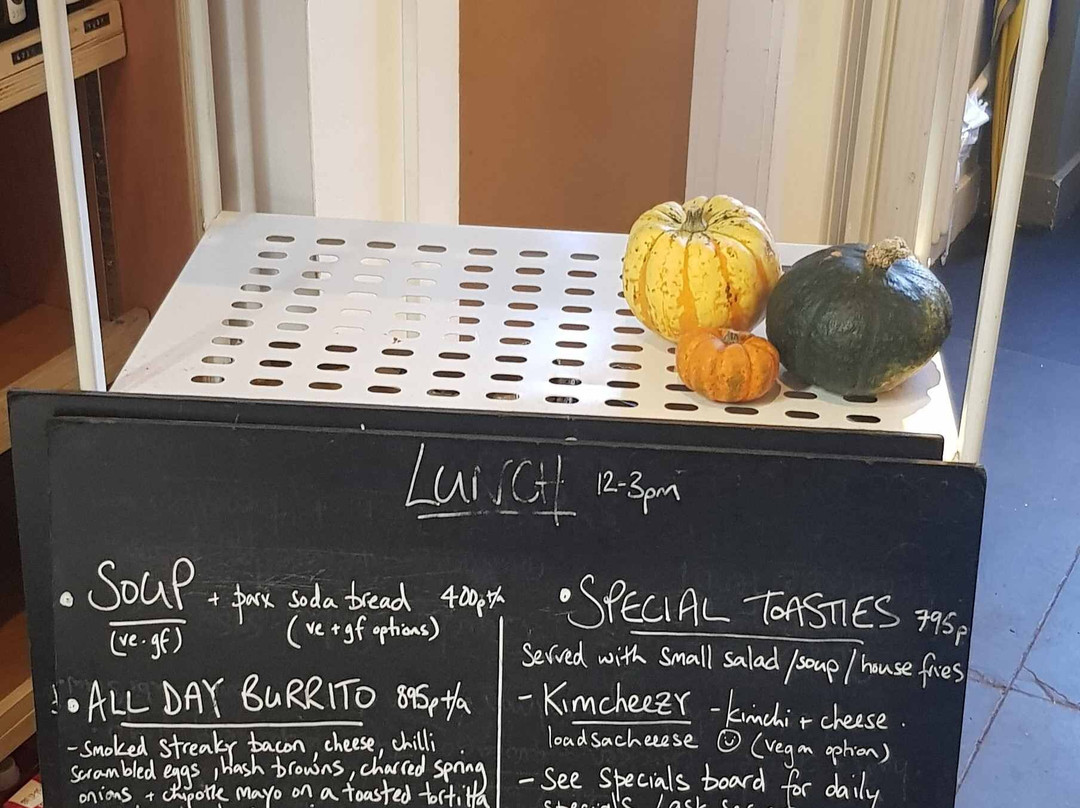 LUNCH 12-3pm
• SOUP + park soda bread 400p t/a
(ve·gf) (ve + gf options)
• ALL DAY BURRITO 895p t/a
- smoked streaky bacon, cheese, chilli
scrambled eggs, hash browns, charred spring
onions + chipotle mayo on a toasted tortilla
• SPECIAL TOASTIES 795p
Served with small salad/soup/house fries
- KimcheezY - kimchi + cheese.
loadsacheeese ☺ (vegan option)
- See specials board for daily
specials / ask